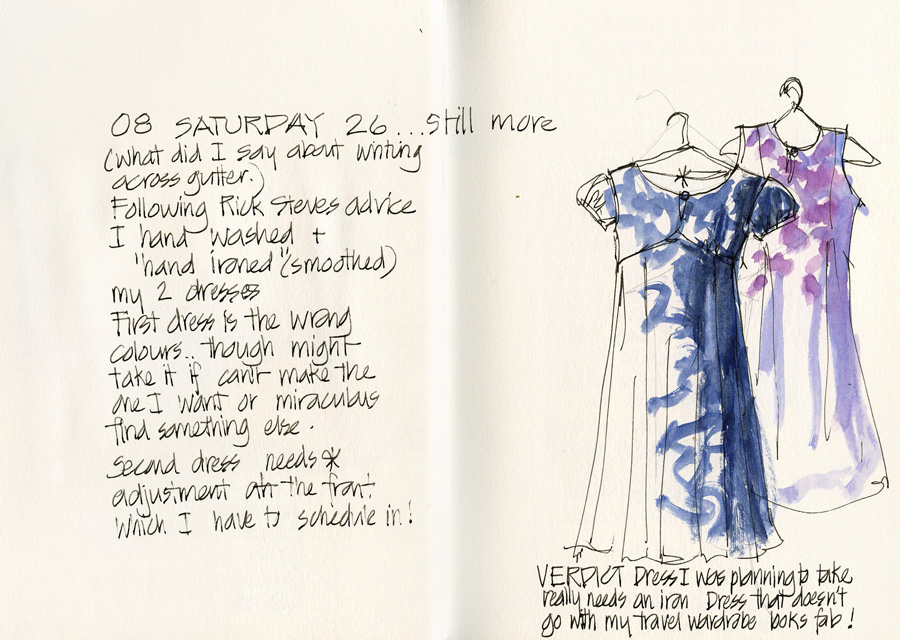 08 SATURDAY 26...still more
(what did I say about writing
across gutter.)
Following Rick Steves advice
I hand washed +
"hand ironed" (smoothed)
my 2 dresses
First dress is the wrong
colours.. though might
take it if can't make the
one I want or miraculous
find something else.
Second dress needs *
adjustment at the front
which I have to schedule in!
*
VERDICT Dress I was planning to take
really needs an iron Dress that doesn't
go with my travel wardrobe looks fab!